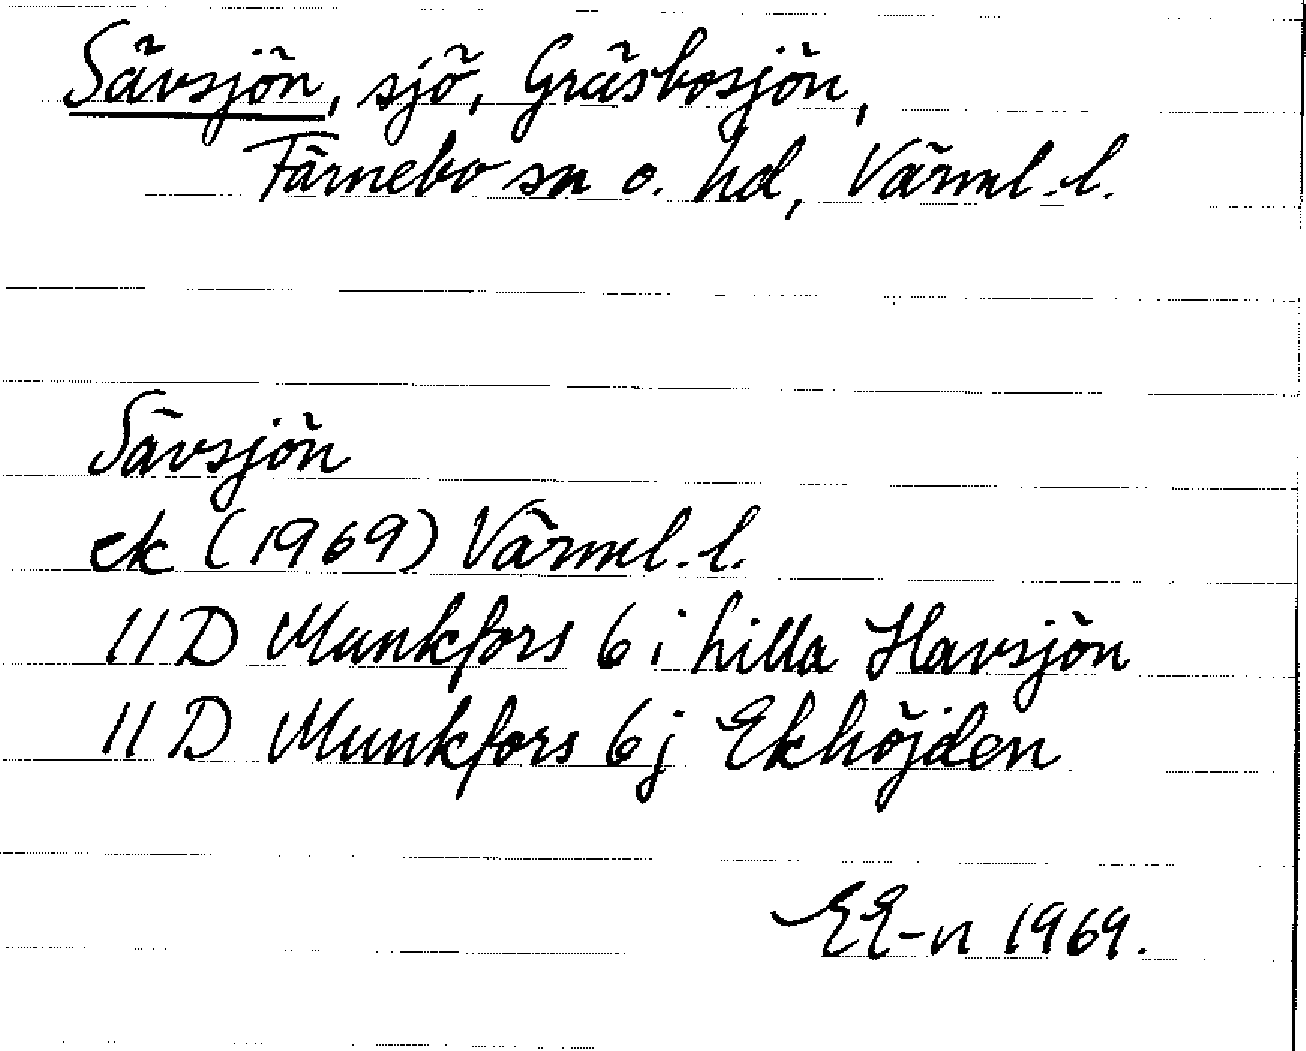 Sävsjön, sjö, Gräsbosjön,
Färnebo sn o. hd, Värml. l.
Sävsjön
ek (1969) Värml. l.
11D Munkfors 6 i Lilla Havsjön
11D Munkfors 6 j Ekhöjden
EE-n 1969.